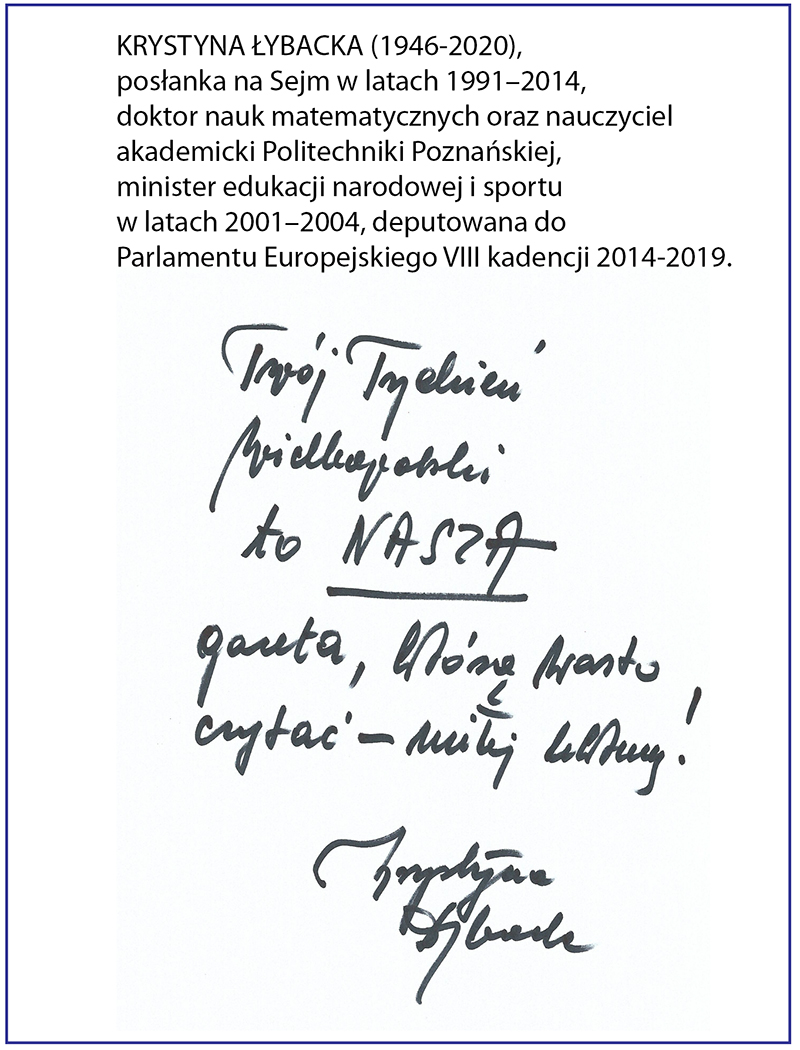 KRYSTYNA ŁYBACKA (1946-2020),
posłanka na Sejm w latach 1991–2014,
doktor nauk matematycznych oraz nauczyciel
akademicki Politechniki Poznańskiej,
minister edukacji narodowej i sportu
w latach 2001–2004, deputowana do
Parlamentu Europejskiego VIII kadencji 2014-2019.
Twój Tydzień
Wielkopolski
to NASZA
gazeta, którą warto
czytać – miłej lektury!
Krystyna
Łybacka